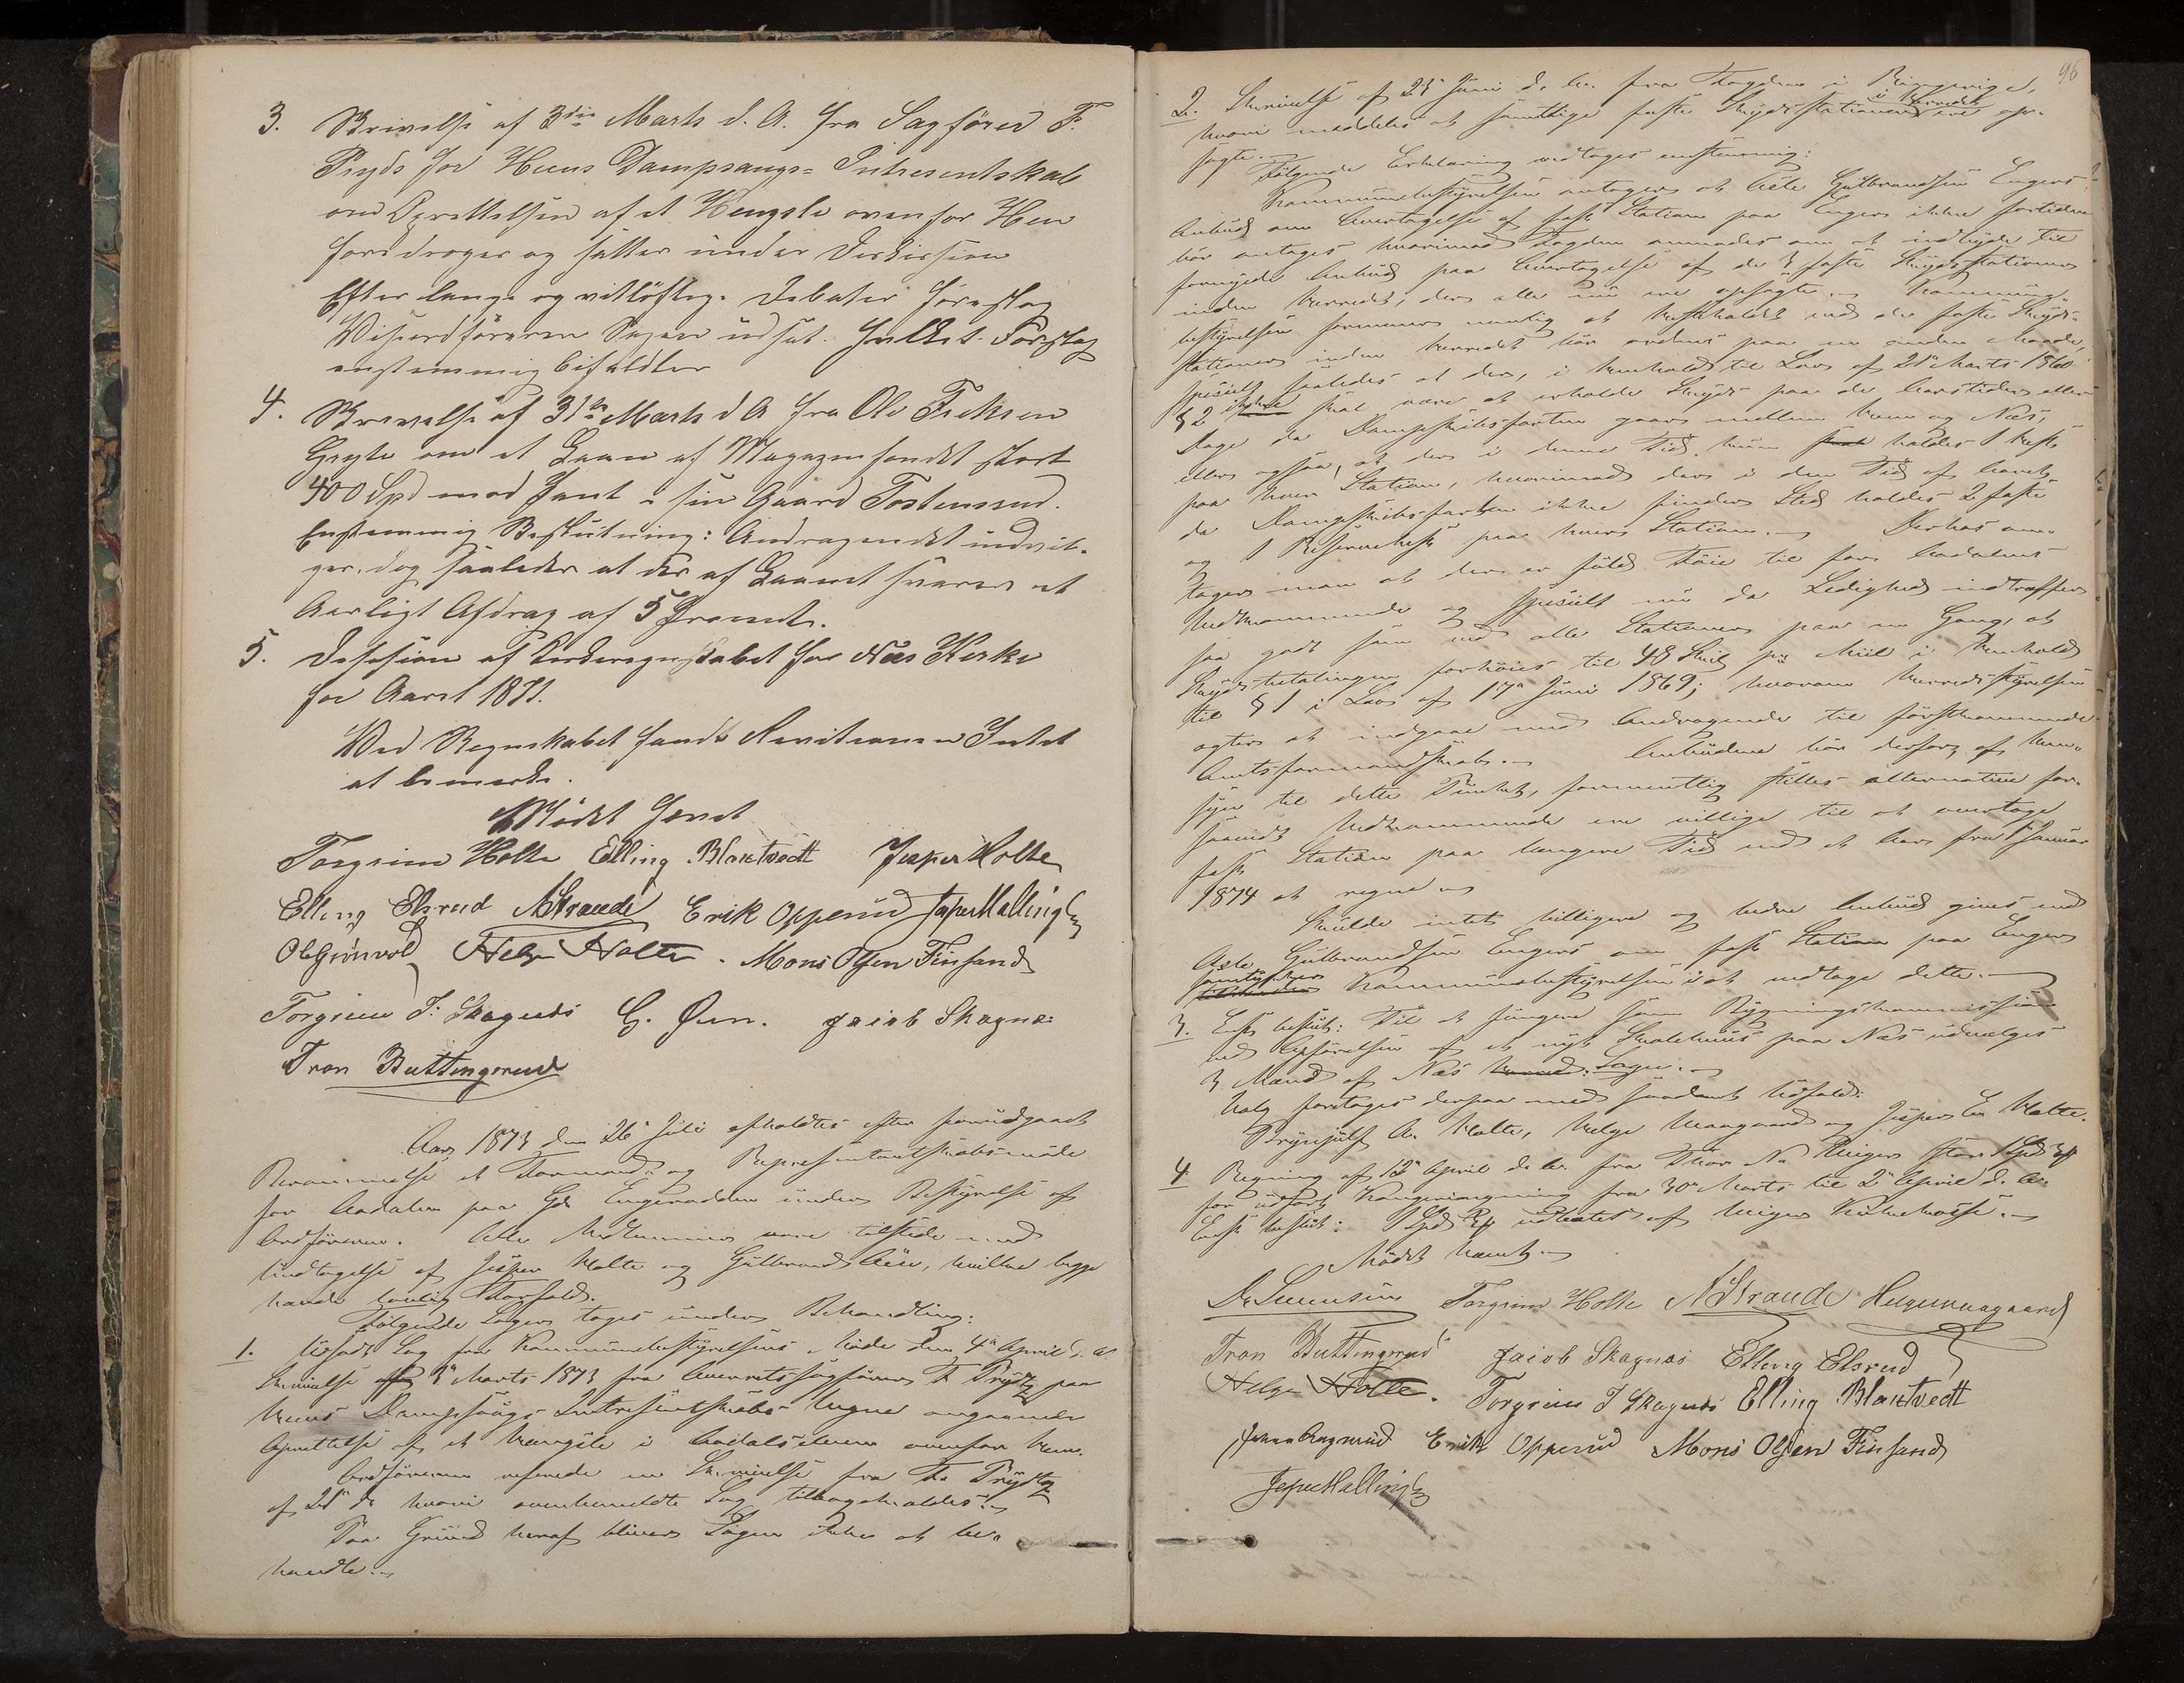 3. Skrivelse af 3die Marts d. A. fra Sagfører F.
Prydz for Heens Dampsaugs-Intresentskab
om Oprettelsen af et Hengsle ovenfor Hen
foredrages og sattes under Diskussion
Efter lange og vitløftige Debater foreslog
Viseordføreren Sagen udsat. Hvilket Forslag
enstemmig bifaldtes
4. Skrivelse af 31te Marts d A fra Ole Eriksen
om et Laan af Magazinfondet stort
400 Spd mod Pant i sin Gaard Tostensrud.
Enstemmig Beslutning: Andragendet indvil-
ges, dog saaledes at der af Laanet svares et
Aarligt Afdrag af 5 Procent.
5. Desision af Kirkeregnskabet for Næs Kirke
for Aaret 1871.
Ved Regnskabet fandt Revisionen Intet
at bemerke.
Mødet hævet
Torgrim Holte Elling Blaktvedt Jesper Holte
Elling Elsrud AStrande Erik Opperud JeperHalling
OlGrønvold Helge Holte. Mons Olsen Finsand
Torgrim J. Skagnæs G. Øen. Jacob Skagnæs
Tron Buttingsrud
Aar 1873 den 26de Juli afholdtes efter forudgaaet
Berammelse et Formands og Repræsentantskabsmøde
for Aadalen paa Gd. Engerodden under Bestyrelse af
Ordføreren. Alle Medlemmer vare tilstede med
Undtagelse af Jesper Holte og Gulbrand Øen, hvilke begge
havde lovlig Forfald.
Følgende Sager toges under Behandling:
1. Udsat Sag fra Kommunebestyrelsens Møde den 4de April d. A.
Skrivelse af 3de Marts 1873 fra Overretssagfører F Prydtz paa
Heens Dampsaugs Intresentskabs Vegne angaaende
Oprettelse af et Hængsle i Aadalselven ovenfor Heen.
Ordføreren refererede en Skrivelse fra Fr. Prydtz
af 25de ds hvori ovenomeldte Sag tilbagekaldes.
Paa Grund heraf bliver Sagen ikke at be-
handle.
96
2. Skrivelse af 25 Juni d. Aa. fra Fogden i Ringerige,
i Herredet
hvori meddeles at samtlige faste Skydsstationer ere op-
sagte.
Følgende Erklæring vedtoges enstemmig:
Kommunebestyrelsen antager at Asle Gulbrandsen Engers
Anbud om Overtagelse af fast Station paa Enger ikke fortiden
bør antages hvorimod Fogden anmodes om at indbyde til
fornyede Anbud paa Overtagelse af de 3 faste Skydsstationer
inden Herredet, der alle nu ere opsagte. Kommune-
bestyrelsen formener nemlig at Hesteholdet ved de faste Skyds-
stationer inden Herredet bør ordnes paa en anden Maade,
specielt saaledes at der, i Henhold til Lov af 21de Marts 1860
§ 2 skal være at erholde Skyds paa de Aarstider eller
Dage da Dampskibsfarten gaar mellem Heen og Næs,
eller ogsaa, at der i denne Tid kun skal holdes 1 Hest
paa hver Station, hvorimod der i den Tid af Aaret,
da Dampskibsfarten ikke finder Sted holdes 2 faste
og 1 Reservehest paa hver Station. Derhos an-
tager man at der er fuld Føie til for Aadalens
Vedkommende og specielt nu da Ledighed indtræffer
saa godt som ved alle Stationer paa en Gang, at
Skydsbetalingen forhøies til 48 Skil pr Miil i Henhold
til § 1 i Lov af 17de Juni 1869; hvorom Herredsstyrelsen
agter at indgaa med Andragende til førstkommende
Amtsformandskab. Anbudene bør derfor, af Hen-
syn til dette Punkt, formentlig stilles alternative for-
saavidt Vedkommende ere villige til at overtage
fast Station paa længere Tid end et Aar fra 1 Januar
1874 at regne
Skulde intet billigere og bedre Anbud gives end
Asle Gulbrandsen Engers om fast Station paa Enger
samtykker
Kommunebestyrelsen i at vedtage dette.
3. Enst. beslut: Til at fungere som Bygningskommission
ved Opførelsen af et nyt Skolehuus paa Næs udvælges
3 Mænd af Næs Herred. Sogn.
Valg foretoges derpaa med saadant Udfald:
Brynjulf A. Holte, Helge Haagaard og Jesper En Holte.
4 Regning af 12te April d. Aa. fra Thor N. Ringer stor 1 Spd
for udført fra 30te Marts til 2de April d. Aa.
Enst. beslut: 1 Spd udbetales af
Mødet hævet.
Torgrim Holte AStrande Helge Haagaard
Tron Buttingsrud Jacob Skagnæs Elling Elsrud
Helge Holte. Torgrim J Skagnæs Elling Blaktvedt
Erik Opperud Mons Olsen Finsand
JeperHalling